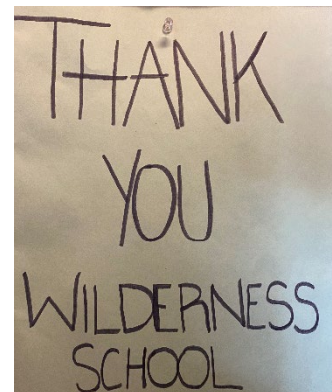 THANK
YOU
WILDERNESS
SCHOOL